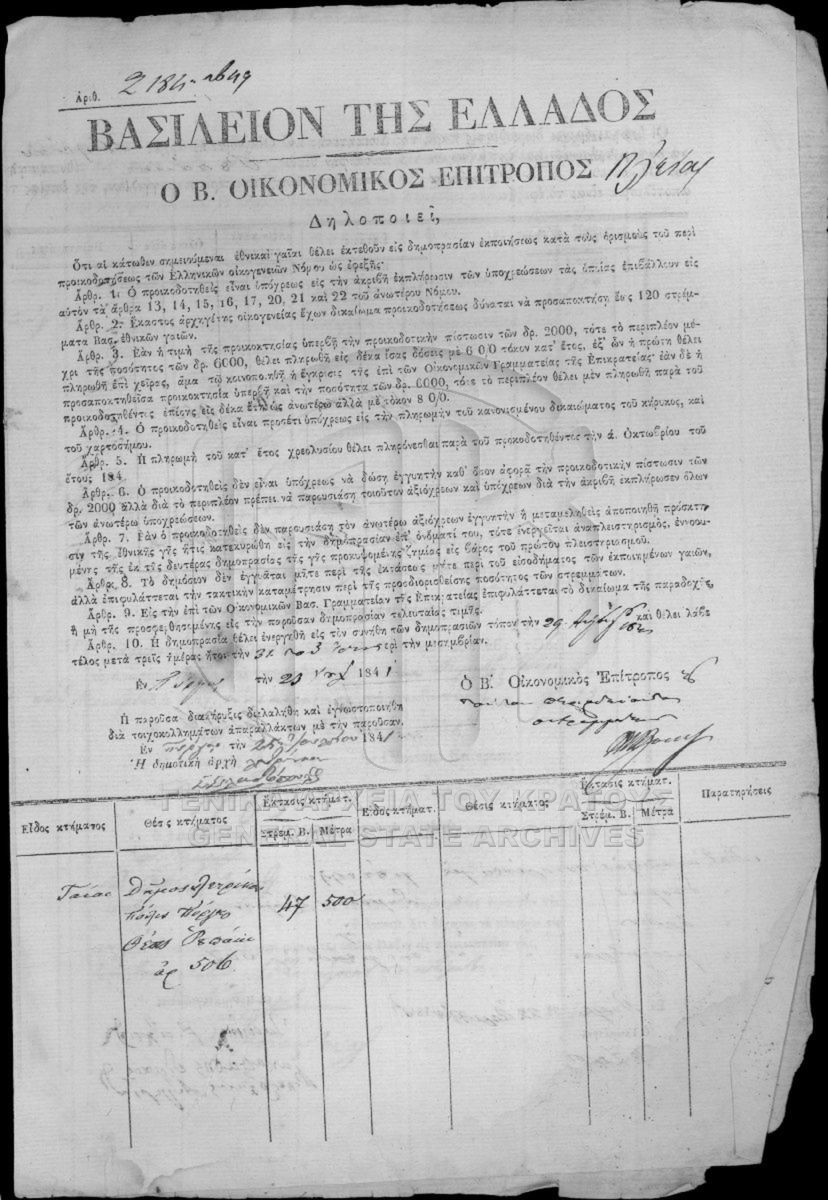 Ἀριθ. 2184
ΒΑΣΙΛΕΙΟΝ ΤΗΣ ΕΛΛΑΔΟΣ
Ο Β. ΟΙΚΟΝΟΜΙΚΟΣ ΕΠΙΤΡΟΠΟΣ Ηλείας
Δηλοποιεῖ,
Ὅτι αἱ κάτωθεν σημειούμεναι ἐθνικαὶ γαῖαι θέλει ἐκτεθοῦν εἰς δημοπρασίαν ἐκποιήσεως κατὰ τοὺς ὁρισμοὺς τοῦ περὶ
προικοδοτήσεως τῶν Ἑλληνικῶν οἰκογενειῶν Νόμου ὡς ἐφεξῆς·
Ἄρθρ. 1. Ὁ προικοδοτηθεὶς εἶναι ὑπόχρεως εἰς τὴν ἀκριβῆ ἐκπλήρωσιν τῶν ὑποχρεώσεων τὰς ὁποίας ἐπιβάλλουν εἰς
αὐτὸν τὰ ἄρθρα 13, 14, 15, 16, 17, 20, 21 καὶ 22 τοῦ ἀνωτέρου Νόμου.
Ἄρθρ. 2. Ἕκαστος ἀρχηγέτης οἰκογενείας ἔχων δικαίωμα προικοδοτήσεως δύναται νὰ προσαποκτήσῃ ἕως 120 στρέμ-
ματα Βασ. ἐθνικῶν γαιῶν.
Ἄρθρ. 3. Ἐὰν ἡ τιμὴ τῆς προικοκτησίας ὑπερβῇ τὴν προικοδοτικὴν πίστωσιν τῶν δρ. 2000, τότε τὸ περιπλέον μέ-
χρι τῆς ποσότητος τῶν δρ. 6000, θέλει πληρωθῆ εἰς δέκα ἴσας δόσεις μὲ 6 0/0 τόκον κατ' ἔτος, ἐξ' ὧν ἡ πρώτη θέλει
πληρωθῆ ἐπὶ χεῖρας, ἅμα τῷ κοινοποιηθῇ ἡ ἔγκρισις τῆς ἐπὶ τῶν Οἰκονομικῶν Γραμματείας τῆς Ἐπικρατείας· ἐὰν δὲ ἡ
προσαποκτηθεῖσα προικοκτησία ὑπερβῇ καὶ τὴν ποσότητα τῶν δρ. 6000, τότε τὸ περιπλέον θέλει μὲν πληρωθῆ παρὰ τοῦ
προικοδοτηθέντος ἐπίσης εἰς δέκα ἔτη ὡς ἀνωτέρω ἀλλὰ μὲ τόκον 8 0/0.
Ἄρθρ. 4. Ὁ προικοδοτηθεὶς εἶναι προσέτι ὑπόχρεως εἰς τὴν πληρωμὴν τοῦ κανονισμένου δικαιώματος τοῦ κήρυκος, καὶ
τοῦ χαρτοσήμου.
Ἄρθρ. 5. Ἡ πληρωμὴ τοῦ κατ' ἔτος χρεολυσίου θέλει πληρόνεσθαι παρὰ τοῦ προικοδοτηθέντος τὴν ά. Ὀκτωβρίου τοῦ
ἔτους 184
Ἄρθρ. 6. Ὁ προικοδοτηθεὶς δὲν εἶναι ὑπόχρεως νὰ δώσῃ ἐγγυητὴν καθ' ὅσον ἀφορᾷ τὴν προικοδοτικὴν πίστωσιν τῶν
δρ. 2000 ἀλλὰ διὰ τὸ περιπλέον πρέπει νὰ παρουσιάσῃ τοιοῦτον ἀξιόχρεων καὶ ὑπόχρεων διὰ τὴν ἀκριβῆ ἐκπλήρωσεν ὅλων
τῶν ἀνωτέρω ὑποχρεώσεων.
Ἄρθρ. 7. Ἐὰν ὁ προικοδοτηθεὶς δὲν παρουσιάσῃ τὸν ἀνωτέρω ἀξιόχρεων ἐγγυητὴν ἢ μεταμεληθεὶς ἀποποιηθῇ πρόσκτη-
σιν τῆς ἐθνικῆς γῆς ἥτις κατεκυρώθη εἰς τὴν δημοπρασίαν ἐπ' ὀνόματί του, τότε ἐνεργεῖται ἀναπλειστηρισμὸς, ἐννοου-
μένης τῆς ἐκ τῆς δευτέρας δημοπρασίας τῆς γῆς προκυψομένης ζημίας εἰς βάρος τοῦ πρώτου πλειστηριασμοῦ.
Ἄρθρ. 8. Τὸ δημόσιον δὲν ἐγγυᾶται μήτε περὶ τῆς ἐκτάσεως μήτε περὶ τοῦ εἰσοδήματος τῶν ἐκποιημένων γαιῶν,
ἀλλὰ ἐπιφυλάττεται τὴν τακτικὴν καταμέτρησιν περὶ τῆς προσδιορισθείσης ποσότητος τῶν στρεμμάτων.
Ἄρθρ. 9. Εἰς τὴν ἐπὶ τῶν Οἰκονομικῶν Βασ. Γραμματείαν τῆς Ἐπικρατείας ἐπιφυλάττεται τὸ δικαίωμα τῆς παραδοχῆς
ἢ μὴ τῆς προσφερθησομένης εἰς τὴν παροῦσαν δημοπρασίαν τελευταίας τιμῆς.
Ἄρθρ. 10. Ἡ δημοπρασία θέλει ἐνεργηθῆ εἰς τὸν συνήθη τῶν δημοπρασιῶν τόπον τὴν 29 καὶ θέλει λάβει
τέλος μετὰ τρεῖς ἡμέρας ἤτοι τὴν 31 περὶ τὴν μεσημβρίαν.
Ἐν Πύργῳ τὴν 23 1841
Ὁ Β. Οἰκονομικὸς Ἐπίτροπος
Ἡ παροῦσα διακήρυξις διελαλήθη καὶ ἐγνωστοποιήθη
διὰ τοιχοκολλημάτων ἀπαραλλάκτων μὲ τὴν παροῦσαν.
Ἐν Πύργῳ τὴν 25 1841
Ἡ δημοτικὴ ἀρχὴ
ΓΕΝΙΚΑ ΑΡΧΕΙΑ ΤΟΥ ΚΡΑΤΟΥΣ
GENERAL STATE ARCHIVES
Εἶδος κτήματος Θέσις κτήματος Ἔκτασις κτήματ. Στρέμ. Β. Μέτρα Εἶδος κτήματ. Θέσις κτήματος Ἔκτασις κτήματ. Στρέμ. Β. Μέτρα Παρατηρήσεις
Γαίας Δήμος Λετρίνων 47 500
πόλις Πύργος
Θέσις
ἀρ 506